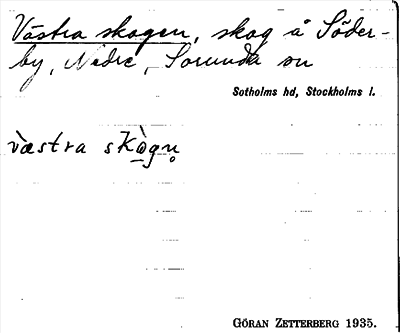 Västra skogen, skog å Söder-
by, Nedre, Sorunda sn
Sotholms hd, Stockholms l.
v̀æstra skò̱gn̥
GÖRAN ZETTERBERG 1935.